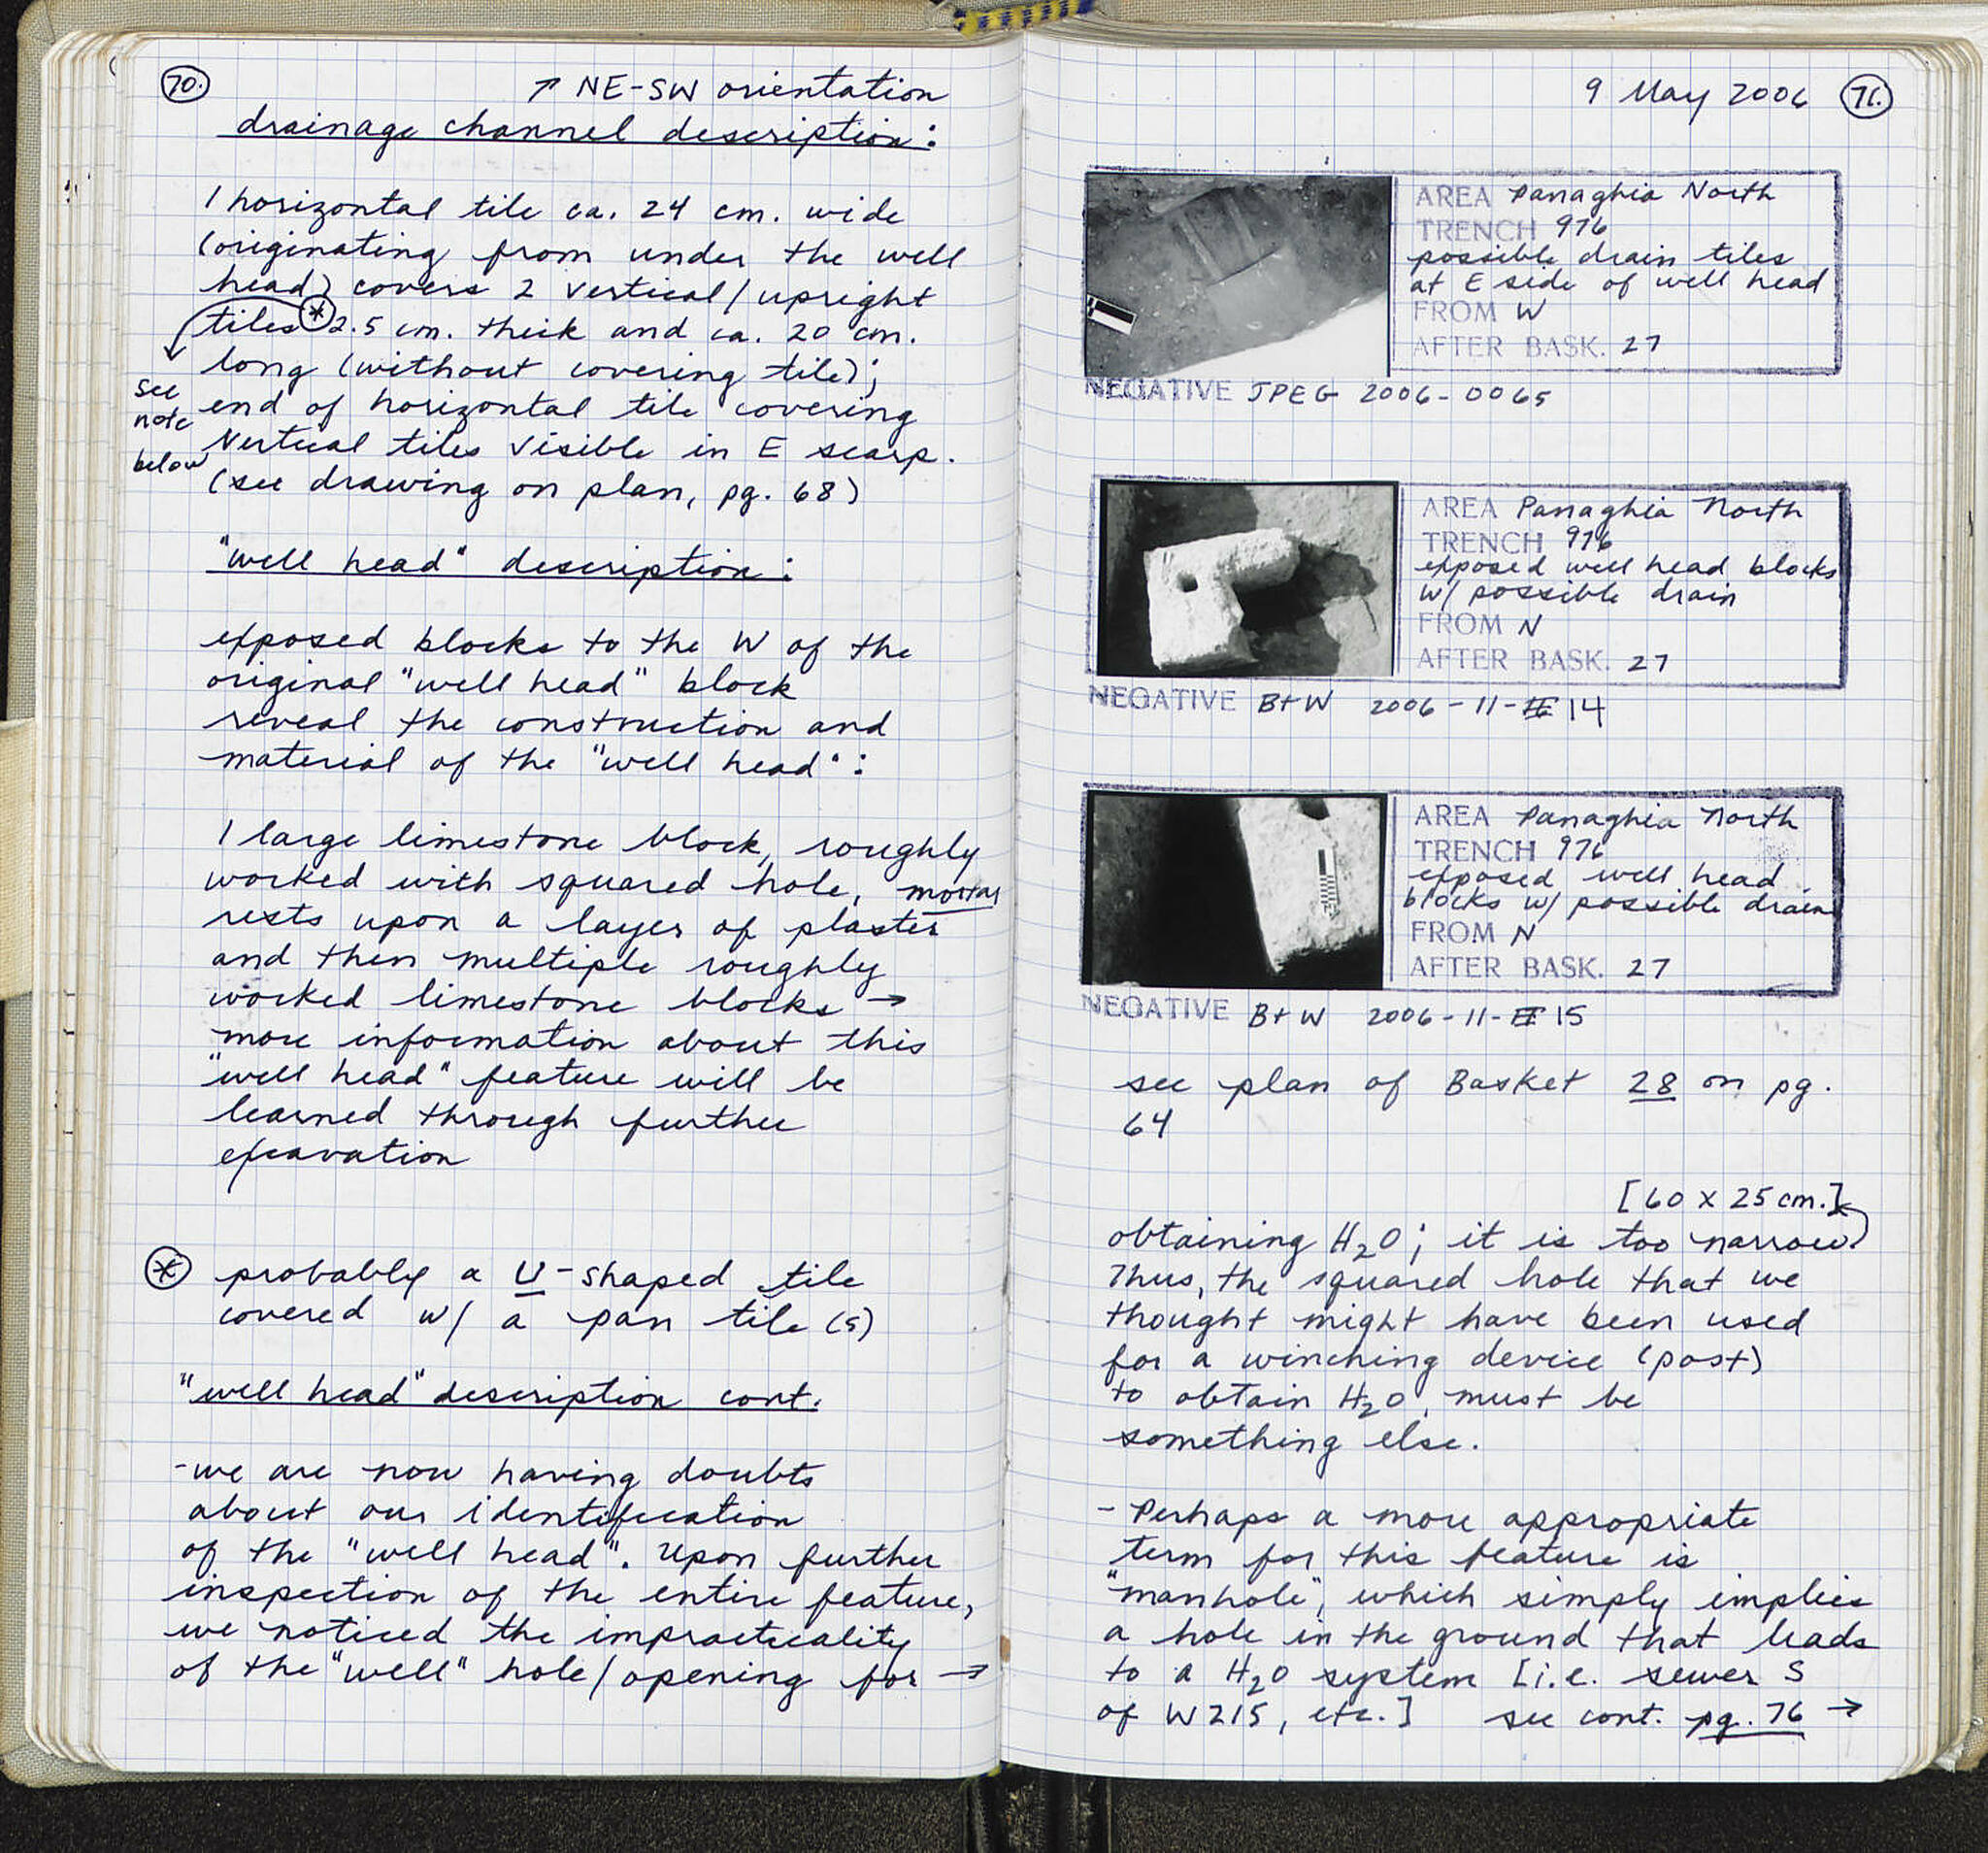 70.
↗ NE-SW orientation
drainage channel description:
1 horizontal tile ca. 24 cm. wide
(originating from under the well
head) covers 2 vertical/upright
tiles * 2.5 cm. thick and ca. 20 cm.
long (without covering tile);
see
note
below
end of horizontal tile covering
vertical tiles visible in E scarp.
(see drawing on plan, pg. 68)
"well head" description:
exposed blocks to the W of the
original "well head" block
reveal the construction and
material of the "well head":
1 large limestone block, roughly
worked with squared hole, mortar
rests upon a layer of plaster
and then multiple roughly
worked limestone blocks →
more information about this
"well head" feature will be
learned through further
excavation
* probably a U-shaped tile
covered w/ a pan tile (s)
"well head" description cont.
- we are now having doubts
about our identification
of the "well head". Upon further
inspection of the entire feature,
we noticed the impracticality
of the "well" hole/opening for →
9 May 2006 71.
AREA Panaghia North
TRENCH 976
possible drain tiles
at E side of well head
FROM W
AFTER BASK. 27
NEGATIVE JPEG 2006-0065
AREA Panaghia North
TRENCH 976
exposed well head blocks
w/ possible drain
FROM N
AFTER BASK. 27
NEGATIVE B+W 2006-11-14
AREA Panaghia North
TRENCH 976
exposed well head
blocks w/ possible drain
FROM N
AFTER BASK. 27
NEGATIVE B+W 2006-11-15
see plan of Basket 28 on pg.
64
[60 x 25 cm.]
obtaining H₂O; it is too narrow
Thus, the squared hole that we
thought might have been used
for a winching device (post)
to obtain H₂O, must be
something else.
- Perhaps a more appropriate
term for this feature is
"manhole", which simply implies
a hole in the ground that leads
to a H₂O system [i.e. sewer S
of W215, etc.] see cont. pg. 76 →